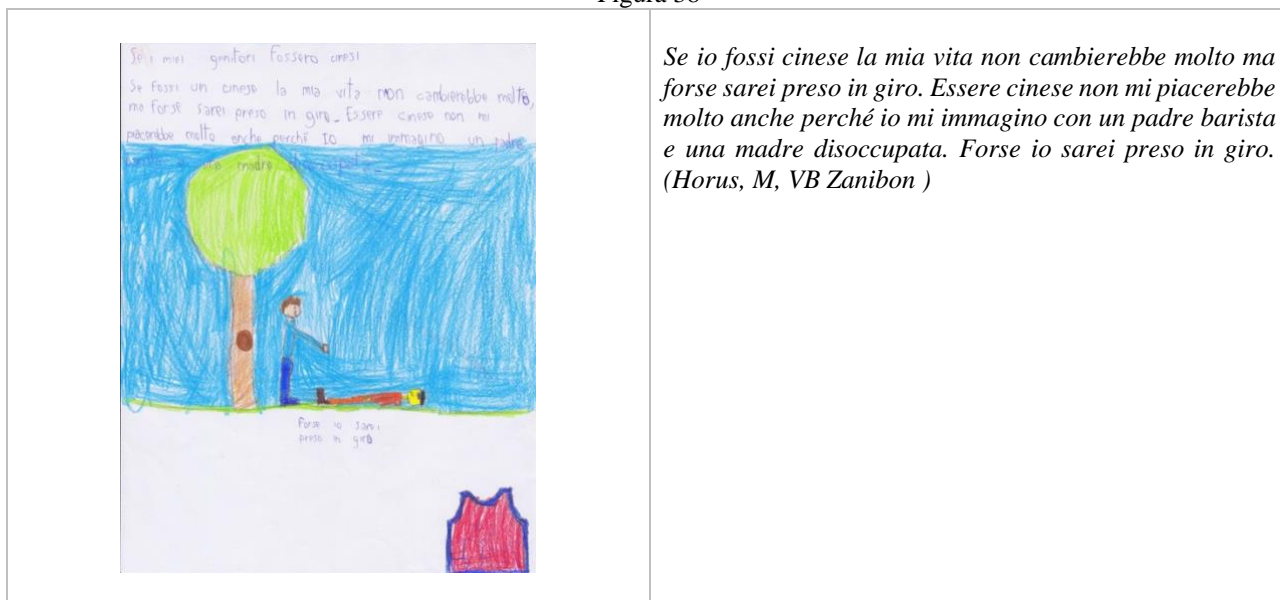 Figura 38
Se i miei genitori fossero cinesi
Se fossi un cinese la mia vita non cambierebbe molto,
ma forse sarei preso in giro. Essere cinese non mi
piacerebbe molto anche perché IO mi immagino un padre
madre
Forse io sarei
preso in giro
Se io fossi cinese la mia vita non cambierebbe molto ma
forse sarei preso in giro. Essere cinese non mi piacerebbe
molto anche perché io mi immagino con un padre barista
e una madre disoccupata. Forse io sarei preso in giro.
(Horus, M, VB Zanibon )